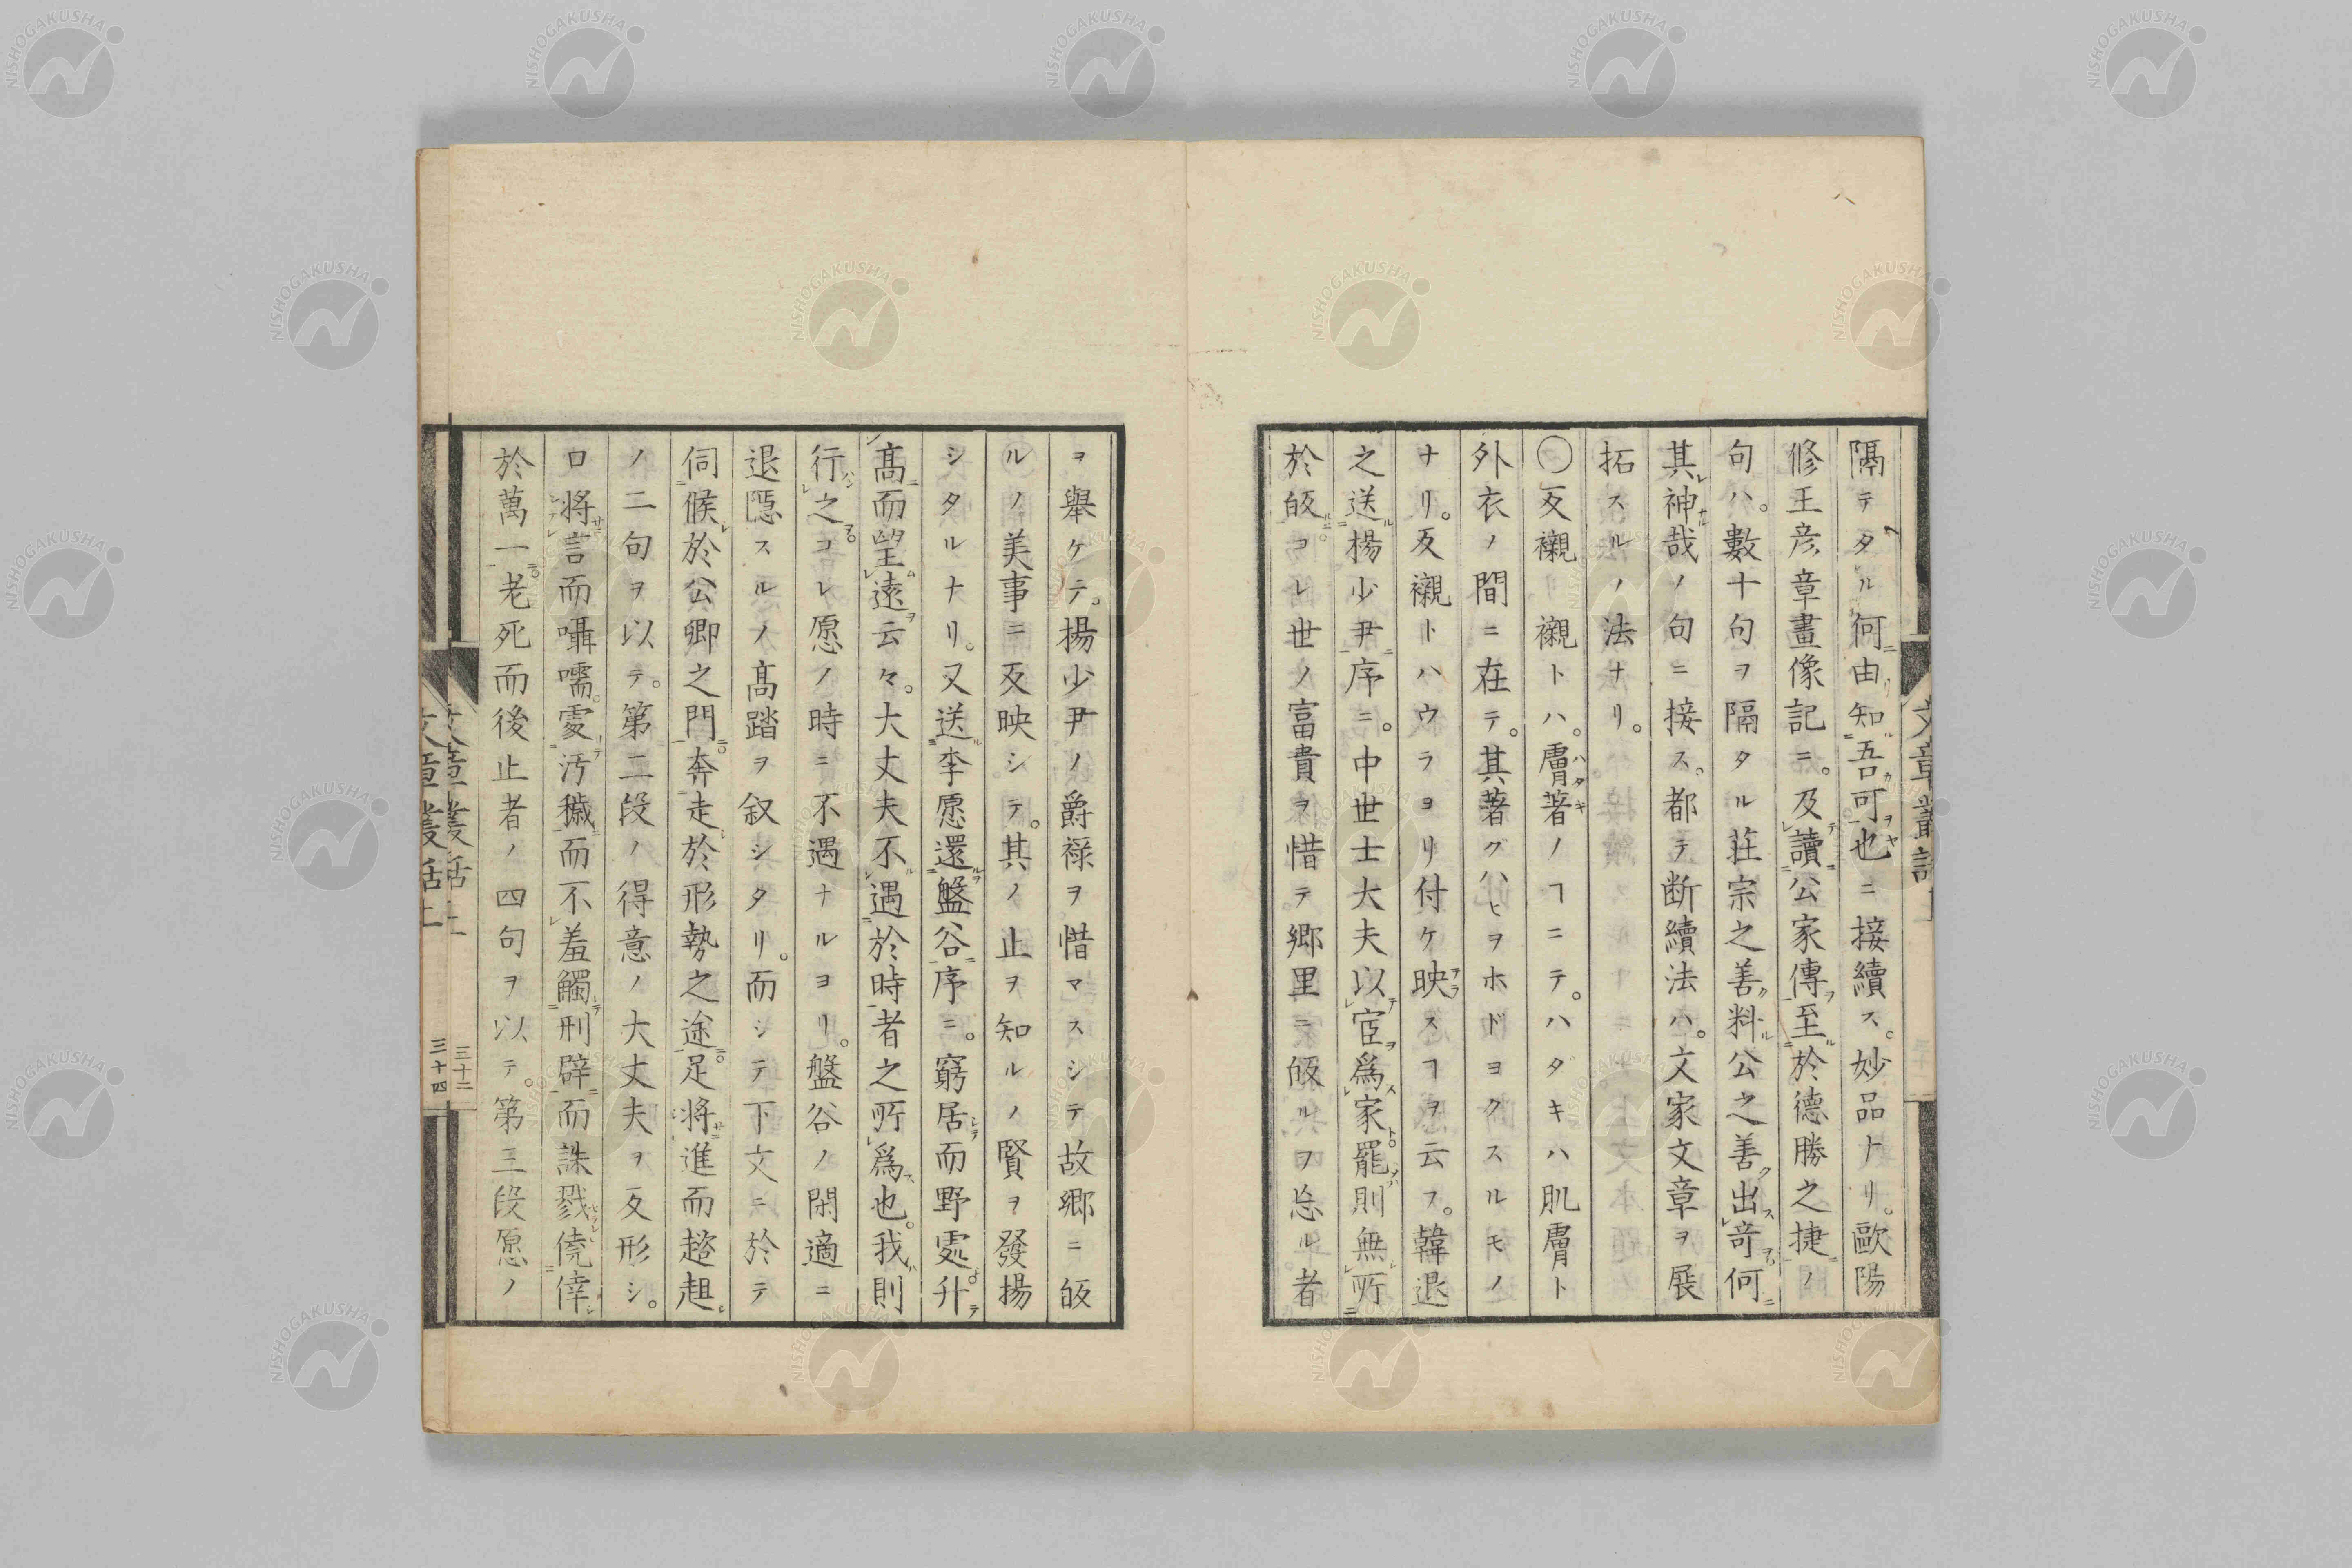 隔テタル何由知吾可也ニ接續ス。妙品ナリ。歐陽
修王彦章畫像記ニ。及讀公家傳至於德勝之捷ノ
句ハ。數十句ヲ隔タル莊宗之善料公之善出竒何
其神哉ノ句ニ接ス。都テ断續法ハ。文家文章ヲ展
拓スルノ法ナリ。
〇反襯襯トハ。膚著ノヿニテ。ハダキハ肌膚ト
外衣ノ間ニ在テ。其著グハヒヲホドヨクスルモノ
ナリ。反襯トハウラヨリ付ケ映スヿヲ云フ。韓退
之送楊少尹序ニ。中世士大夫以宦爲家罷則無所
於皈コレ世ノ富貴ヲ惜テ郷里ニ皈ルヲ忘ル者
ヲ舉ケテ。揚少尹ノ爵祿ヲ惜マスシテ故郷ニ皈
ルノ美事ニ反映シテ。其ノ止ヲ知ルノ賢ヲ發揚
シタルナリ。又送李愿還盤谷序ニ。窮居而野處升
髙而望遠云々。大丈夫不遇於時者之所爲也。我則
行之コレ愿ノ時ニ不遇ナルヨリ。盤谷ノ閑適ニ
退隱スルノ髙踏ヲ叙シタリ。而シテ下文ニ於テ
伺候於公卿之門奔走於形勢之途足將進而趦趄
ノ二句ヲ以テ。第二段ノ得意ノ大丈夫ヲ反形シ。
口將言而囁嚅。處汚穢而不羞觸刑辟而誅戮僥倖
於萬一老死而後止者ノ四句ヲ以テ。第三段愿ノ
文章叢話上
三十二
三十四
NISHOGAKUSHA